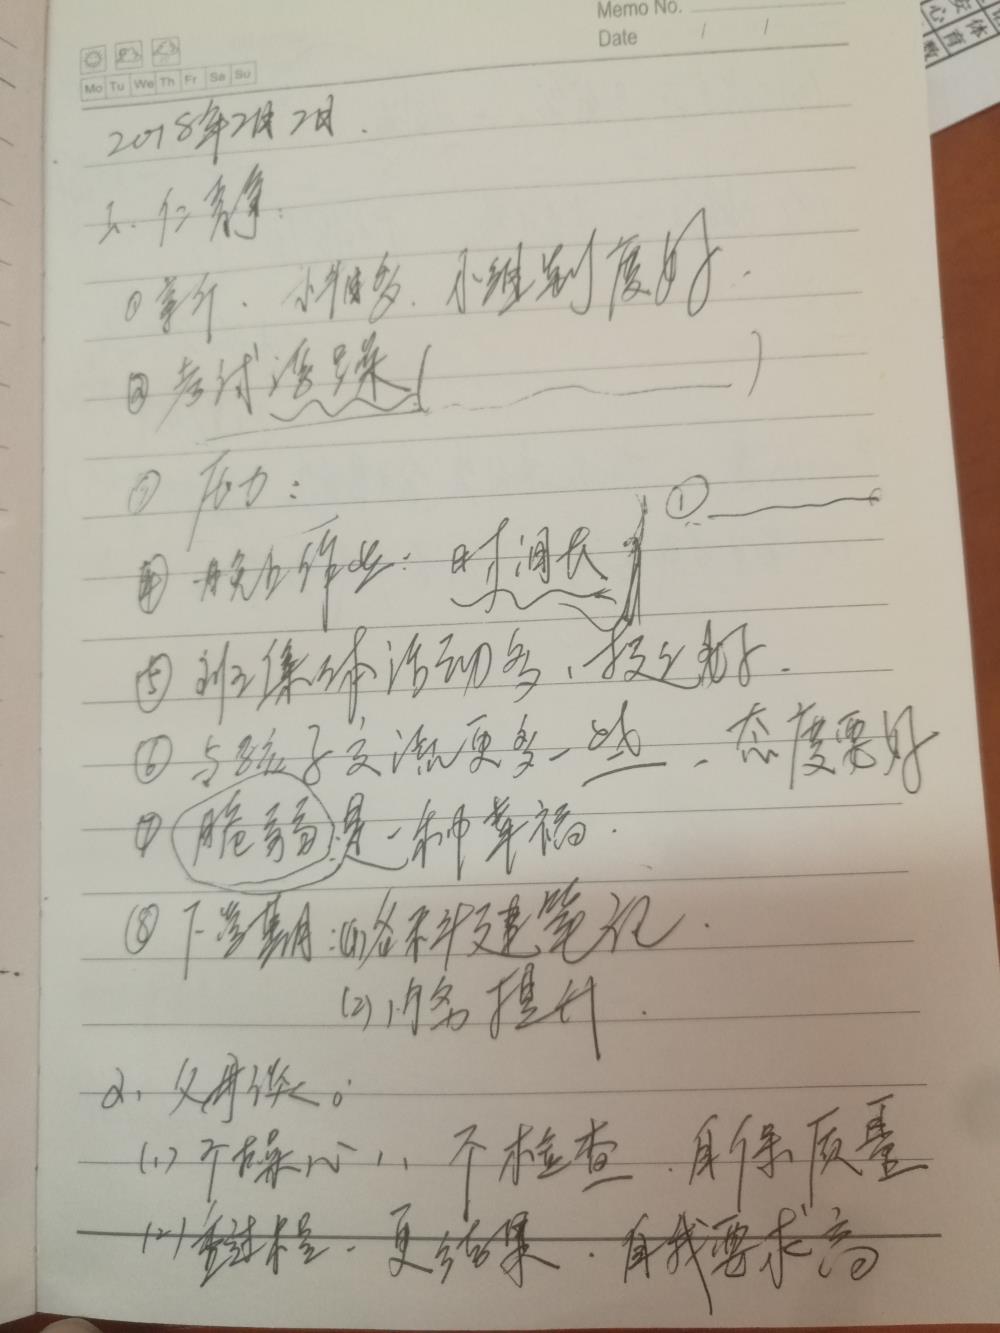 Memo No.
Date / /
Mo Tu We Th Fr Sa Su
2018年2月2日.
仁静:
① 小组多、小组制度好.
② 考试 ( )
③ 压力:
④ 晚上作业: 时间长 ①
⑤ 班集体活动多、好.
⑥ 与孩子交流更多一些、态度要好
⑦ 脆弱是一种幸福.
⑧ 下学期:(1)各科建笔记.
(2)、内务提升.
2、父母谈:
(1)不操心、不检查、自保质量
(2)重过程、更结果、自我要求高